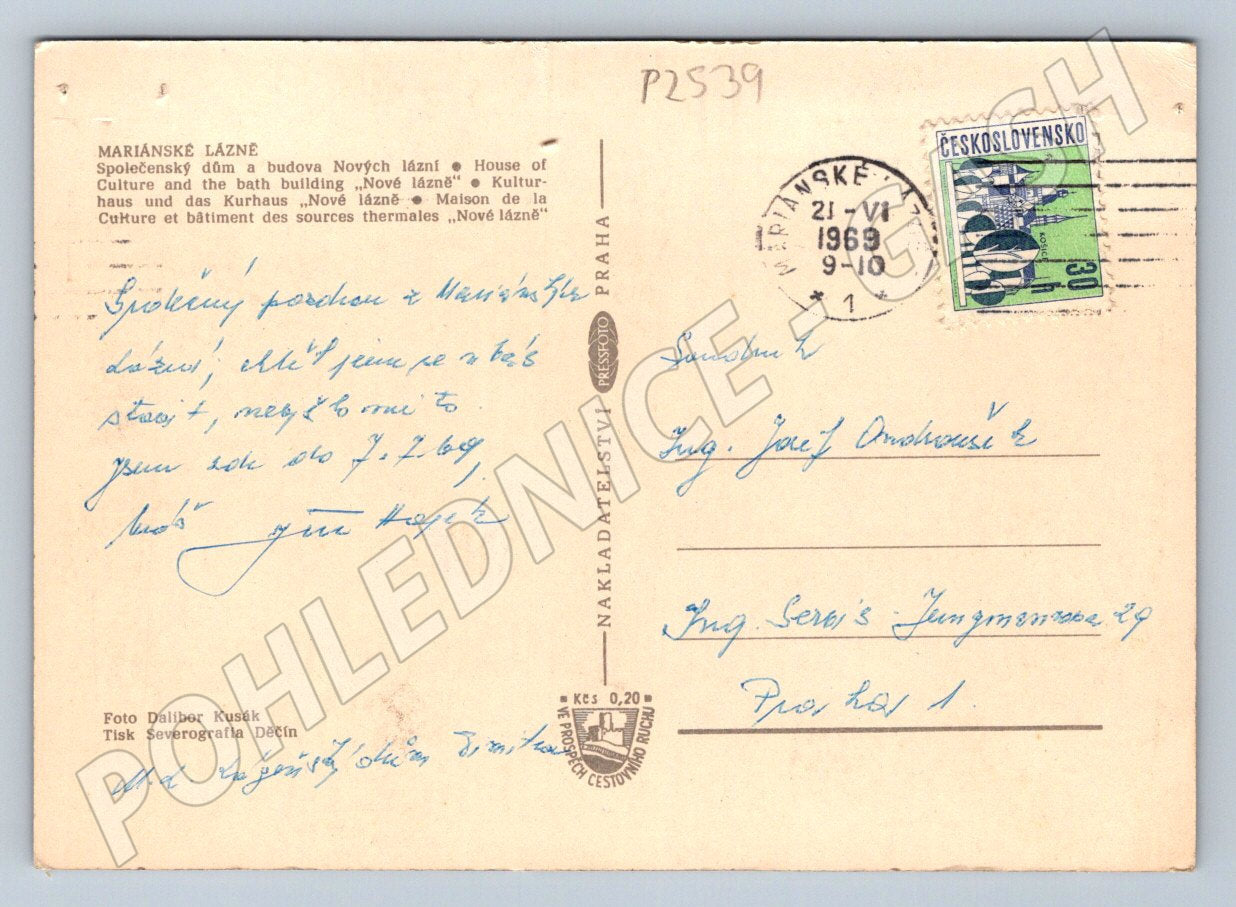 P2539
MARIÁNSKÉ LÁZNĚ
Společenský dům a budova Nových lázní ● House of
Culture and the bath building „Nové lázně“ ● Kultur-
haus und das Kurhaus „Nové lázně ● Maison de la
Culture et bâtiment des sources thermales „Nové lázně“
pozdrav z Mariánských
Lázní,
stavit, nevyšlo mi to.
Jsem zde do 7.7.69,
Váš Jiří Hájek
Foto Dalibor Kusák
Tisk Severografia Děčín
M.L. Lázeňský dům
NAKLADATELSTVÍ PRESSFOTO PRAHA
Kčs 0,20
VE PROSPĚCH CESTOVNÍHO RUCHU
MARIÁNSKÉ LÁZ
21-VI
1969
9-10
* 1 *
ČESKOSLOVENSKO
KOŠICE
30 h
Soudruh
Ing. Josef
Ing. Servis - Jungmannova 29
Praha 1.
POHLEDNICE - G SH